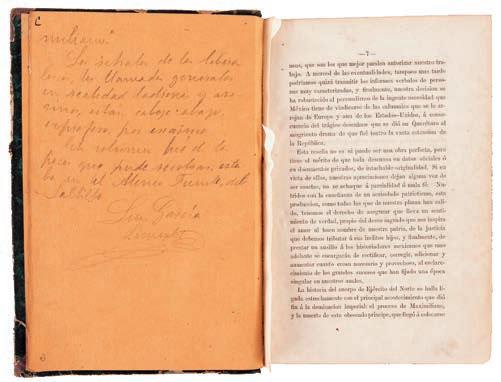 C
— 7 —
mos, que son los que mejor pueden autorizar nuestro tra-
bajo. A merced de las eventualidades, tampoco más tarde
podríamos quizá transmitir los informes verbales de per-
sonas muy caracterizadas, y finalmente, nuestra decisión se
ha robustecido al persuadirnos de la ingente necesidad que
México tiene de vindicarse de las calumnias que se le ar-
rojan de Europa y aun de los Estados-Unidos, á conse-
cuencia del trágico desenlace que se dió en Querétaro al
sangriento drama de que fué teatro la vasta extensión de
la República.
Esta reseña no es ni puede ser una obra perfecta, pero
tiene el mérito de que toda descansa en datos oficiales ó
en documentos privados, de intachable originalidad. Si en
vista de ellos, nuestras apreciaciones dejan alguna vez de
ser exactas, no se achaque á parcialidad ó mala fé. Nu-
tridos con la enseñanza de un acrisolado patriotismo, esta
produccion, como todas las que de nuestra pluma han sali-
do, tenemos el derecho de asegurar que lleva un senti-
miento de verdad, propio del deseo sagrado que nos inspira
el amor al buen nombre de nuestra patria, de la justicia
que debemos tributar á sus ínclitos hijos, y finalmente, de
prestar un auxilio á los historiadores mexicanos que mas
adelante se encargarán de rectificar, corregir, adicionar y
aumentar cuanto crean necesario y provechoso, al esclare-
cimiento de los grandes sucesos que han fijado una época
singular en nuestros anales.
La historia del cuerpo de Ejército del Norte se halla li-
gada estrechamente con el principal acontecimiento que dió
fin á la dominacion imperial: el proceso de Maximiliano,
y la muerte de este obcecado príncipe, que llegó á colocarse
militares."
Los retratos de los
llamados generales
en realidad ladrones y ase-
sinos, están
un volumen
pude
ba en el Ateneo Fuente, del
Saltillo
García